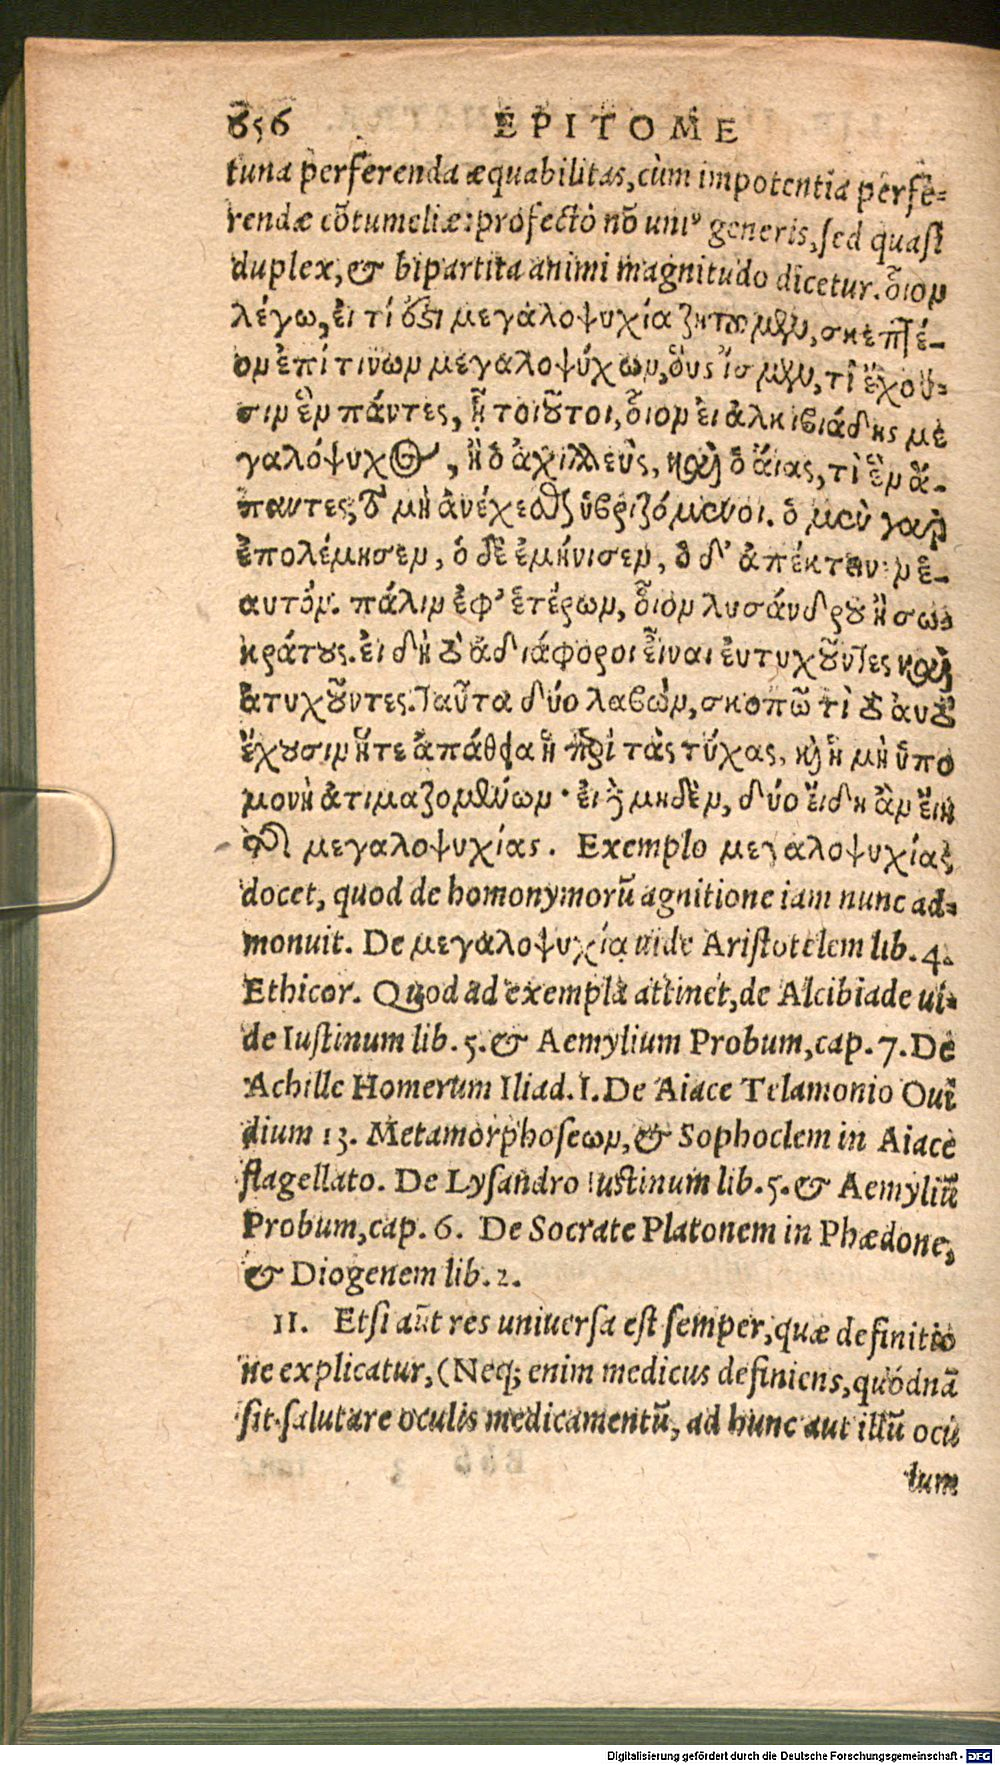 656 EPITOME
tuna perferenda æquabilitas, cùm impotentia perfe-
rendæ cõtumeliæ: profectò nõ uniꝰ generis, sed quasi
duplex, & bipartita animi magnitudo dicetur. ὃιομ
λέγω, ἐι τί ὅξι μεγαλοψυχία ζητοῖμϟυ, σκεπτέ-
ομ ἐπί τινωμ μεγαλοψύχωμ, ὅυς ἴσμϟυ, τί ἔχου-
σιμ ἓμ πάντες, ᾗ τοιοῦτοι, ὃιομ ἐι ἀλκιβιάδης με
γαλόψυχος, ἢ ὁ ἀχιλλεὺς, καὶ ὁ ἄιας, τὶ ἓμ ἅ-
παντες; τὸ μὴ ἀνέχεσθαι ὑβριζόμενοι. ὁ μεν γαρ
ἐπολέμησεμ, ὁ δὲ ἐμήνισεμ, ὁ δ' ἀπέκτεινεμ ἑ-
αυτόμ. πάλιμ ἐφ' ἑτέρωμ, ὃιομ λυσάνδρου ἢ σω-
κράτους. ἐι δὴ τὸ ἀδιάφοροι εἶναι ἐυτυχοῦντες καὶ
ἀτυχοῦντες. ταῦτα δύο λαβὼμ, σκοπῶ τὶ τὸ αυτὸ
ἔχουσιμ ἥτε ἀπάθεια ἡ περὶ τὰς τύχας, κὶ ἡ μὴ ὑπο
μονὴ ἀτιμαζομένωμ· ἐι δὲ μηδὲμ, δύο ἔιδη ἂμ ἔιη
τῆς μεγαλοψυχίας. Exemplo μεγαλοψυχίας
docet, quod de homonymorũ agnitione iam nunc ad-
monuit. De μεγαλοψυχίᾳ uide Aristotelem lib. 4.
Ethicor. Quod ad exempla attinet, de Alcibiade ui-
de Iustinum lib. 5. & Aemylium Probum, cap. 7. De
Achille Homerum Iliad. I. De Aiace Telamonio Oui
dium 13. Metamorphoseωμ, & Sophoclem in Aiace
flagellato. De Lysandro Iustinum lib. 5. & Aemyliũ
Probum, cap. 6. De Socrate Platonem in Phædone,
& Diogenem lib. 2.
11. Etsi aũt res uniuersa est semper, quæ definitio
ne explicatur, (Neq; enim medicus definiens, quódnã
sit salutare oculis medicamentũ, ad hunc aut illũ ocu
lum
Digitalisierung gefördert durch die Deutsche Forschungsgemeinschaft - DFG